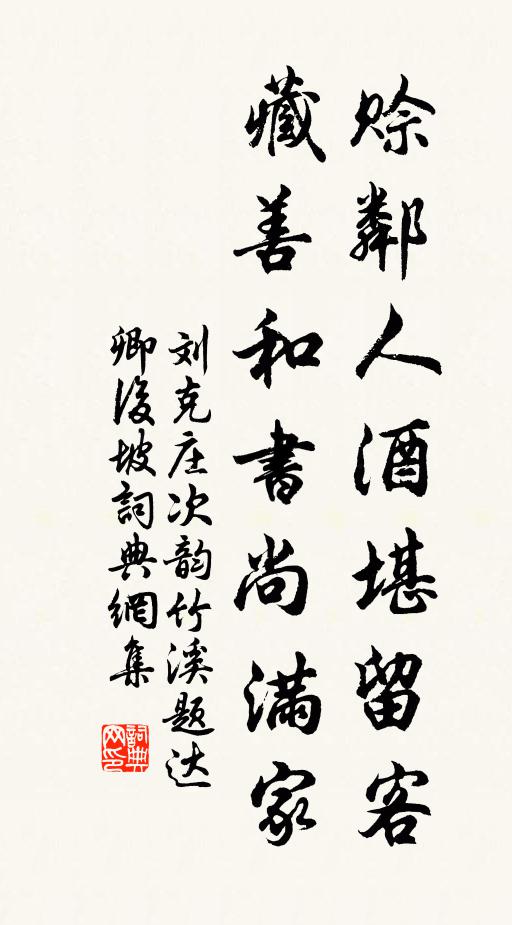 赊鄰人酒堪留客
藏善和書尚滿家
刘克庄次韵竹溪题达
卿后坡詞典網集
詞典网印